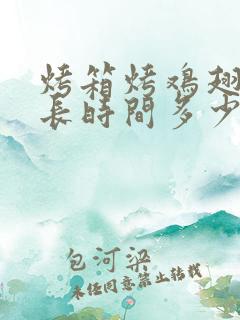 烤箱烤鸡翅
长時間多少
包河梁
未经同意禁止转载